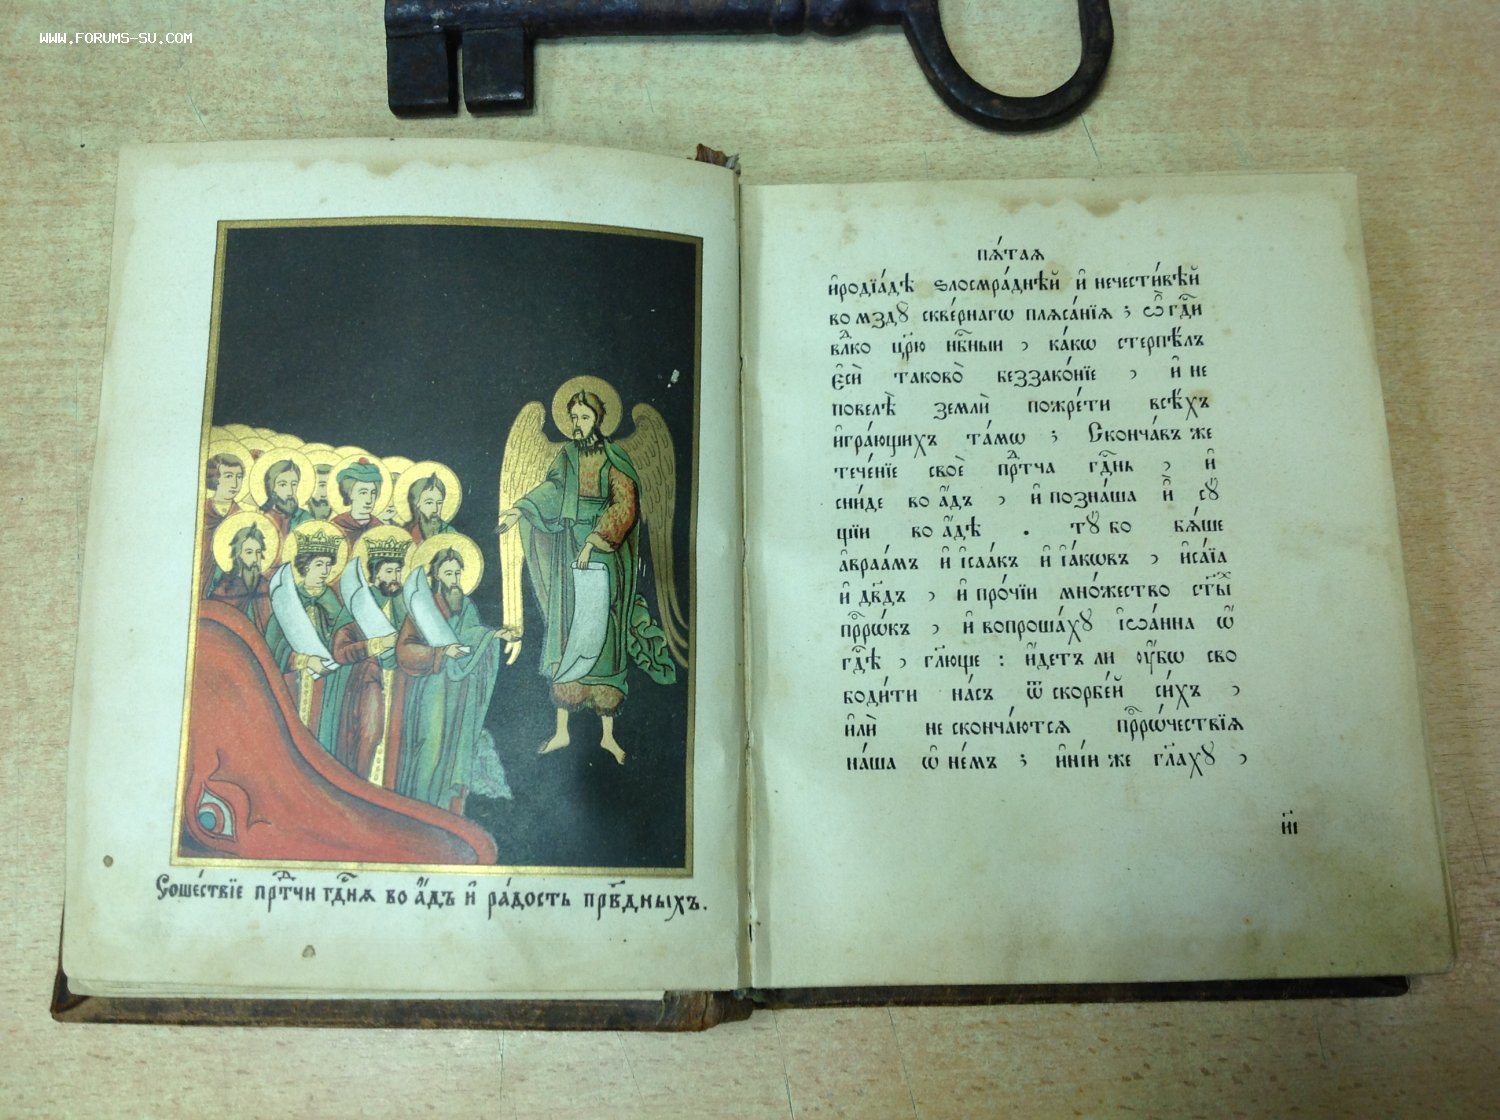 WWW.FORUMS-SU.COM
Соше́ствїе прⷣт҃чи гдⷭ҇нѧ во а҆́дъ и҆ ра́дость прв҃дныхъ.
пѧ́таѧ
и҆родїа́дѣ ѕлосмра́днѣй и҆ нечести́вѣй
во мздꙋ̀ скве́рнагѡ плѧса́нїѧ ; ѽ гдⷭ҇и
влⷣко цр҃ю нбⷭ҇ныи , ка́кѡ стерпѣ́лъ
є҆сѝ таково̀ беззако́нїе , и҆ не
повелѣ̀ землѝ пожре́ти всѣ́хъ
и҆гра́ющихъ та́мѡ ; Сконча́въ же
тече́нїе своѐ прⷣт҃ча гдⷭ҇нь , и҆
сни́де во а҆́дъ , и҆ позна́ша и҆̀ сꙋ́
щїи во а҆́дѣ . тꙋ́ бо бѧ́ше
а҆враа́мъ и҆ і҆саа́къ и҆ і҆а́кѡвъ , и҆са́їа
и҆ дв҃дъ , и҆ про́чїи мно́жество ст҃ы́хⷯ
прⷪ҇рѡ́къ , и҆ вопроша́хꙋ і҆ѡа́нна ѡ҆
гдⷭ҇ѣ , гл҃юще : и҆́детъ ли ᲂу҆́бѡ сво
боди́ти на́съ ѿ скорбе́й си́хъ ,
и҆лѝ не сконча́ютсѧ прⷪ҇рѡ́чествїѧ
на́ша ѡ҆ не́мъ ; и҆нїи же гл҃ахꙋ ,
и҃і